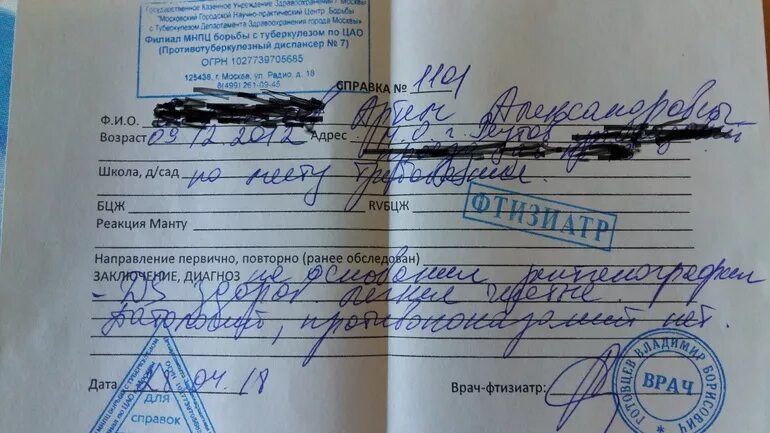 Государственное Казенное Учреждение Здравоохранения г. Москвы
"Московский Городской Научно-практический Центр Борьбы
с Туберкулезом Департамента Здравоохранения города Москвы"
Филиал МНПЦ борьбы с туберкулезом по ЦАО
(Противотуберкулезный диспансер № 7)
ОГРН 1027739705685
г. Москва, ул. Радио, д. 18
8(499) 261-09-45
СПРАВКА № 1101
Ф.И.О. Артем Александрович
Возраст 09.12.2012 Адрес М.О. г. Реутов
Школа, д/сад по месту требования.
БЦЖ RVБЦЖ
ФТИЗИАТР
Реакция Манту
Направление первично, повторно (ранее обследован)
ЗАКЛЮЧЕНИЕ, ДИАГНОЗ на основании рентгенографии
- DS здоров. легкие чистые.
Патологий, противопоказаний нет.
Дата 28.04.18 Врач-фтизиатр:
для
справок
ГОТОВЦЕВ ВЛАДИМИР БОРИСОВИЧ
ВРАЧ